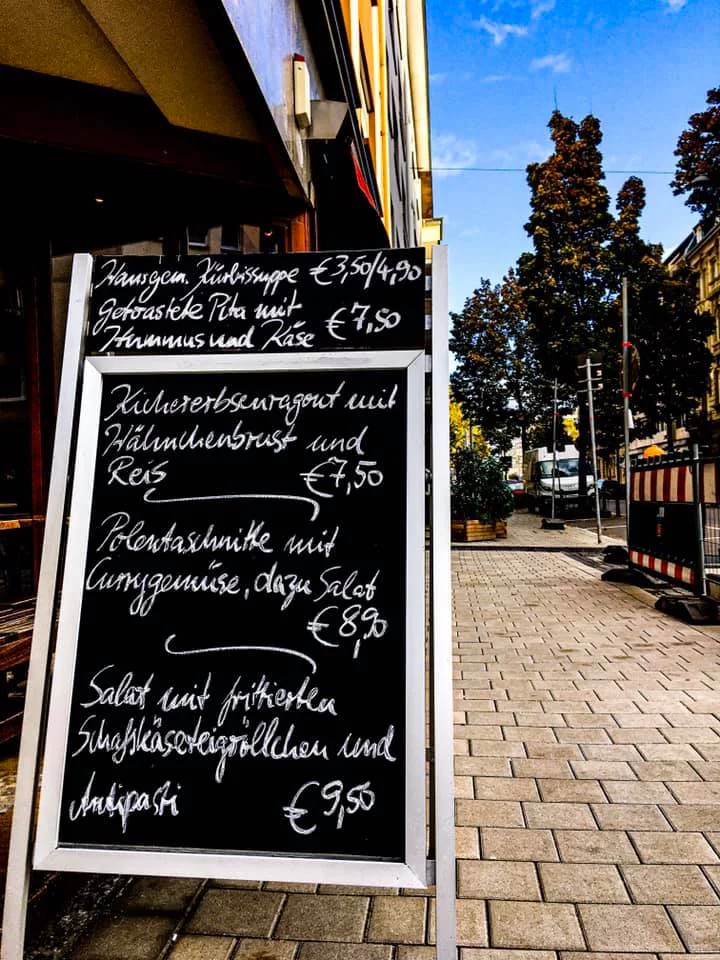 Hausgem. Kürbissuppe €3,50/4,90
getoastete Pita mit
Hummus und Käse €7,50
Kichererbsenragout mit
Hähnchenbrust und
Reis €7,50
Polentaschnitte mit
Currygemüse, dazu Salat
€8,90
Salat mit frittierten
Schafskäseteigröllchen und
Antipasti €9,50